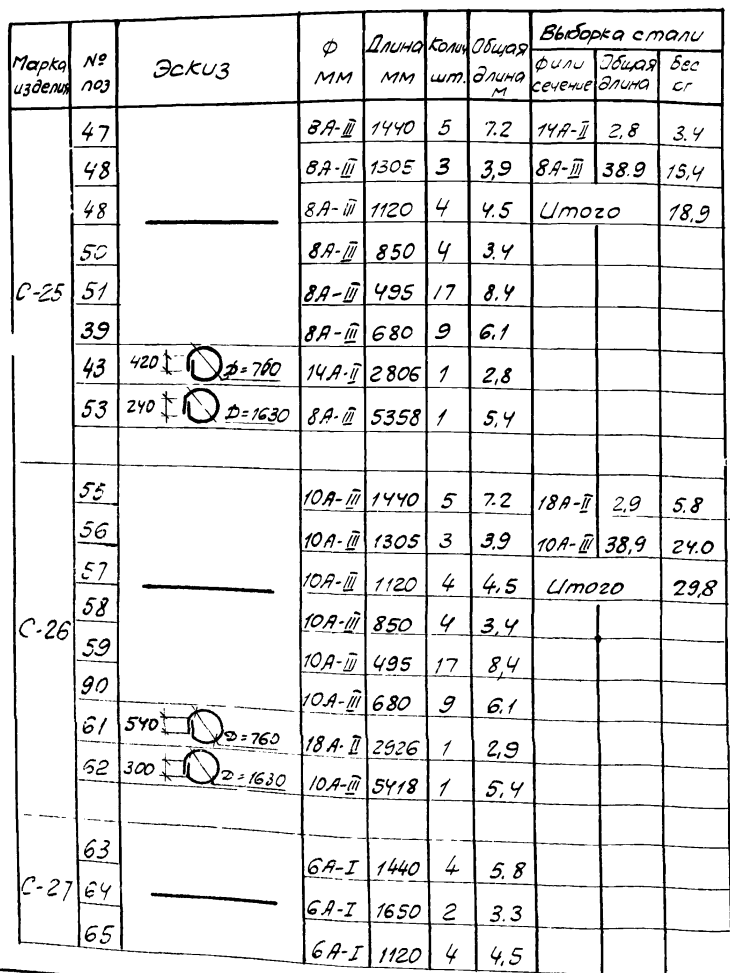 Марка изделия | № поз | Эскиз | ϕ мм | Длина мм | Колич шт. | Общая длина м | Выборка стали
ϕ или сечение | Общая длина | Вес кг
С-25
47 | 8А-III | 1440 | 5 | 7.2 | 14А-II | 2,8 | 3.4
48 | 8А-III | 1305 | 3 | 3,9 | 8А-III | 38.9 | 15,4
48 | 8А-III | 1120 | 4 | 4.5 | Итого | 18.9
50 | 8А-III | 850 | 4 | 3.4
51 | 8А-III | 495 | 17 | 8.4
39 | 8А-III | 680 | 9 | 6.1
43 | 420 D=760 | 14А-II | 2806 | 1 | 2,8
53 | 240 D=1630 | 8А-III | 5358 | 1 | 5,4
С-26
55 | 10А-III | 1440 | 5 | 7.2 | 18А-II | 2,9 | 5.8
56 | 10А-III | 1305 | 3 | 3,9 | 10А-III | 38,9 | 24.0
57 | 10А-III | 1120 | 4 | 4,5 | Итого | 29,8
58 | 10А-III | 850 | 4 | 3,4
59 | 10А-III | 495 | 17 | 8,4
90 | 10А-III | 680 | 9 | 6.1
61 | 540 D=760 | 18А-II | 2926 | 1 | 2,9
62 | 300 D=1630 | 10А-III | 5418 | 1 | 5,4
С-27
63 | 6А-I | 1440 | 4 | 5.8
64 | 6А-I | 1650 | 2 | 3.3
65 | 6А-I | 1120 | 4 | 4,5